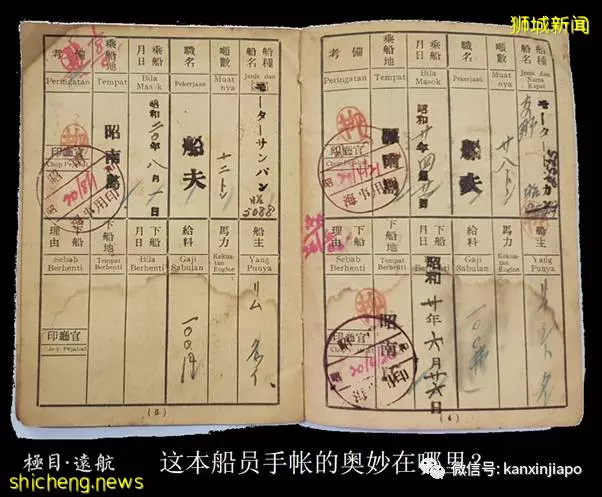 狮城新闻
船種
Jenis dan Nama Kapal
モーターサンパン
5088
噸數
Muatnya
十二トン
職名
Pekerjaan
船夫
乘船月日
Bila Masok
昭和二〇年八月一日
乘船地
Tempat
昭南島
備考
Peringatan
官廳印
Chop Pejabat
海事用印
船主
Yang Punya
リム
馬力
Kekuatan Engine
給料
Gaji Sabulan
一〇〇
下船月日
Bila Berhenti
下船地
Tempat Berhenti
理由
Sebab Berhenti
官廳印
Chop Pejabat
(5)
船種
Jenis dan Nama Kapal
噸數
Muatnya
廿八トン
職名
Pekerjaan
船夫
乘船月日
Bila Masok
乘船地
Tempat
昭南島
備考
Peringatan
官廳印
Chop Pejabat
海事用印
船主
Yang Punya
馬力
Kekuatan Engine
給料
Gaji Sabulan
一〇〇
下船月日
Bila Berhenti
昭和廿年六月廿六日
下船地
Tempat Berhenti
昭南
理由
Sebab Berhenti
官廳印
(4)
極目·遠航
这本船员手帐的奥妙在哪里?
微信号: kanxinjiapo
shicheng.news